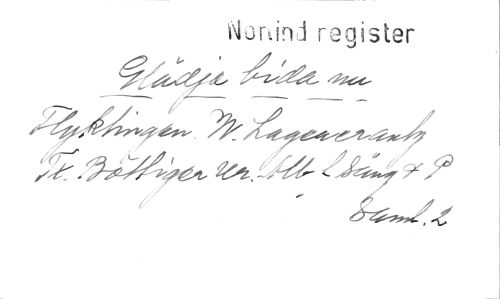 Nonind register
Glädja bida nu
Flyktingen. W. Lagercrantz
Tx. Böttiger ver. Alb f. Sång & P
Saml. 2